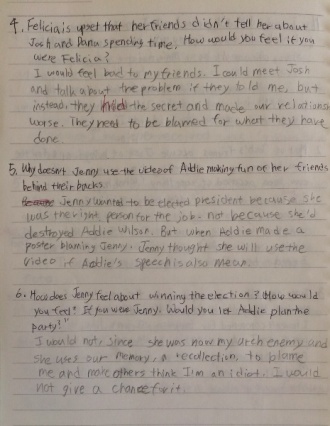 4. Felicia is upset that her friends didn't tell her about
Josh and Dana spending time. How would you feel if you
were Felicia?
I would feel bad to my friends. I could meet Josh
and talk about the problem if they told me, but
instead, they hid the secret and made our relations
worse. They need to be blamed for what they have
done
5. Why doesn't Jenny use the video of Addie making fun of her friends
behind their backs
Jenny wanted to be elected president because she
was the right person for the job - not because she'd
destroyed Addie Wilson. But when Addie made a
poster blaming Jenny. Jenny thought she will use the
video if Addie's speech is also mean.
6. How does Jenny feel about winning the election? How would
you feel? If you were Jenny. Would you let Addie plan the
party?"
I would not, since she was now my arch enemy and
she uses our memory, a recollection, to blame
me and make others think I'm an idiot. I would
not give a chance for it.